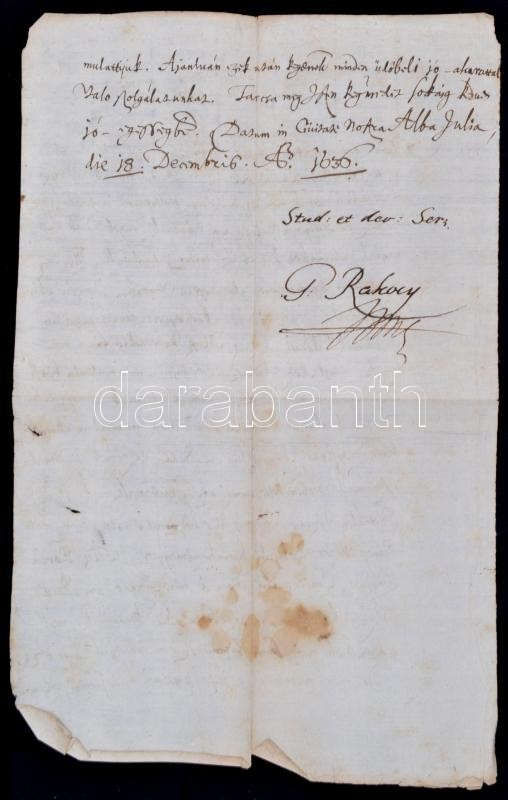 mulattyuk. Ajanluán ezek után kgdnek minden üdőbeli jó-akarattal
való szolgálatunkat. Tarcsa meg Isten kgmedet sokáig
jó-egessegbē. Datum in Civitate Nostra Alba Julia,
die 18. Decembris. Aō. 1636.
Stud: et dev: Ser:
G: Rakocy
darabanth